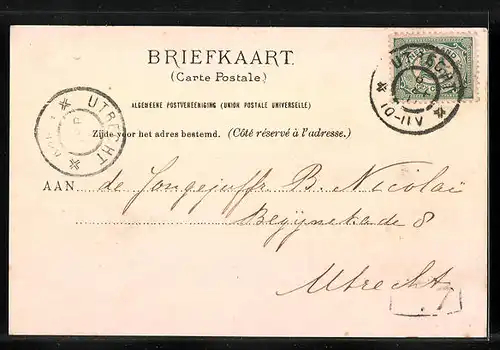 BRIEFKAART.
(Carte Postale.)
ALGEMEENE POSTVEREENIGING (UNION POSTALE UNIVERSELLE)
Zijde voor het adres bestemd. (Côté réservé à l'adresse.)
AAN de Jongejuffr. B. Nicolaï
Begijnekade 8
Utrecht
UTRECHT
UTRECHT